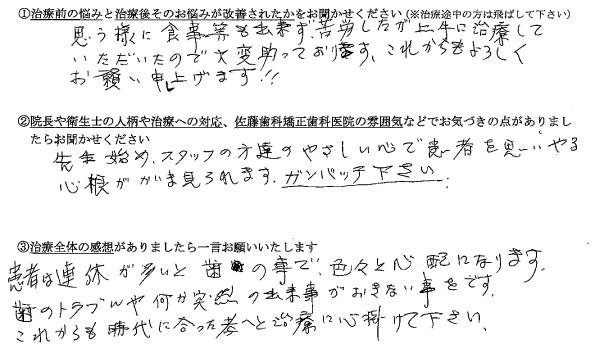 ①治療前の悩みと治療後そのお悩みが改善されたかをお聞かせください(※治療途中の方は飛ばして下さい)
思う様に食事等も出来ず、苦労したが上手に治療して
いただいたので大変助っております、これからもよろしく
お願い申し上げます!!
②院長や衛生士の人柄や治療への対応、佐藤歯科矯正歯科医院の雰囲気などでお気づきの点がありまし
たらお聞かせください
先生始め、スタッフの方達のやさしい心で患者を思いやる
心根がかいま見られます、ガンバッテ下さい
③治療全体の感想がありましたら一言お願いいたします
患者は連休が多いと歯の事で、色々と心配になります、
歯のトラブルや何か突然の出来事がおきない事をです、
これからも時代に合った者へと治療に心掛けて下さい、